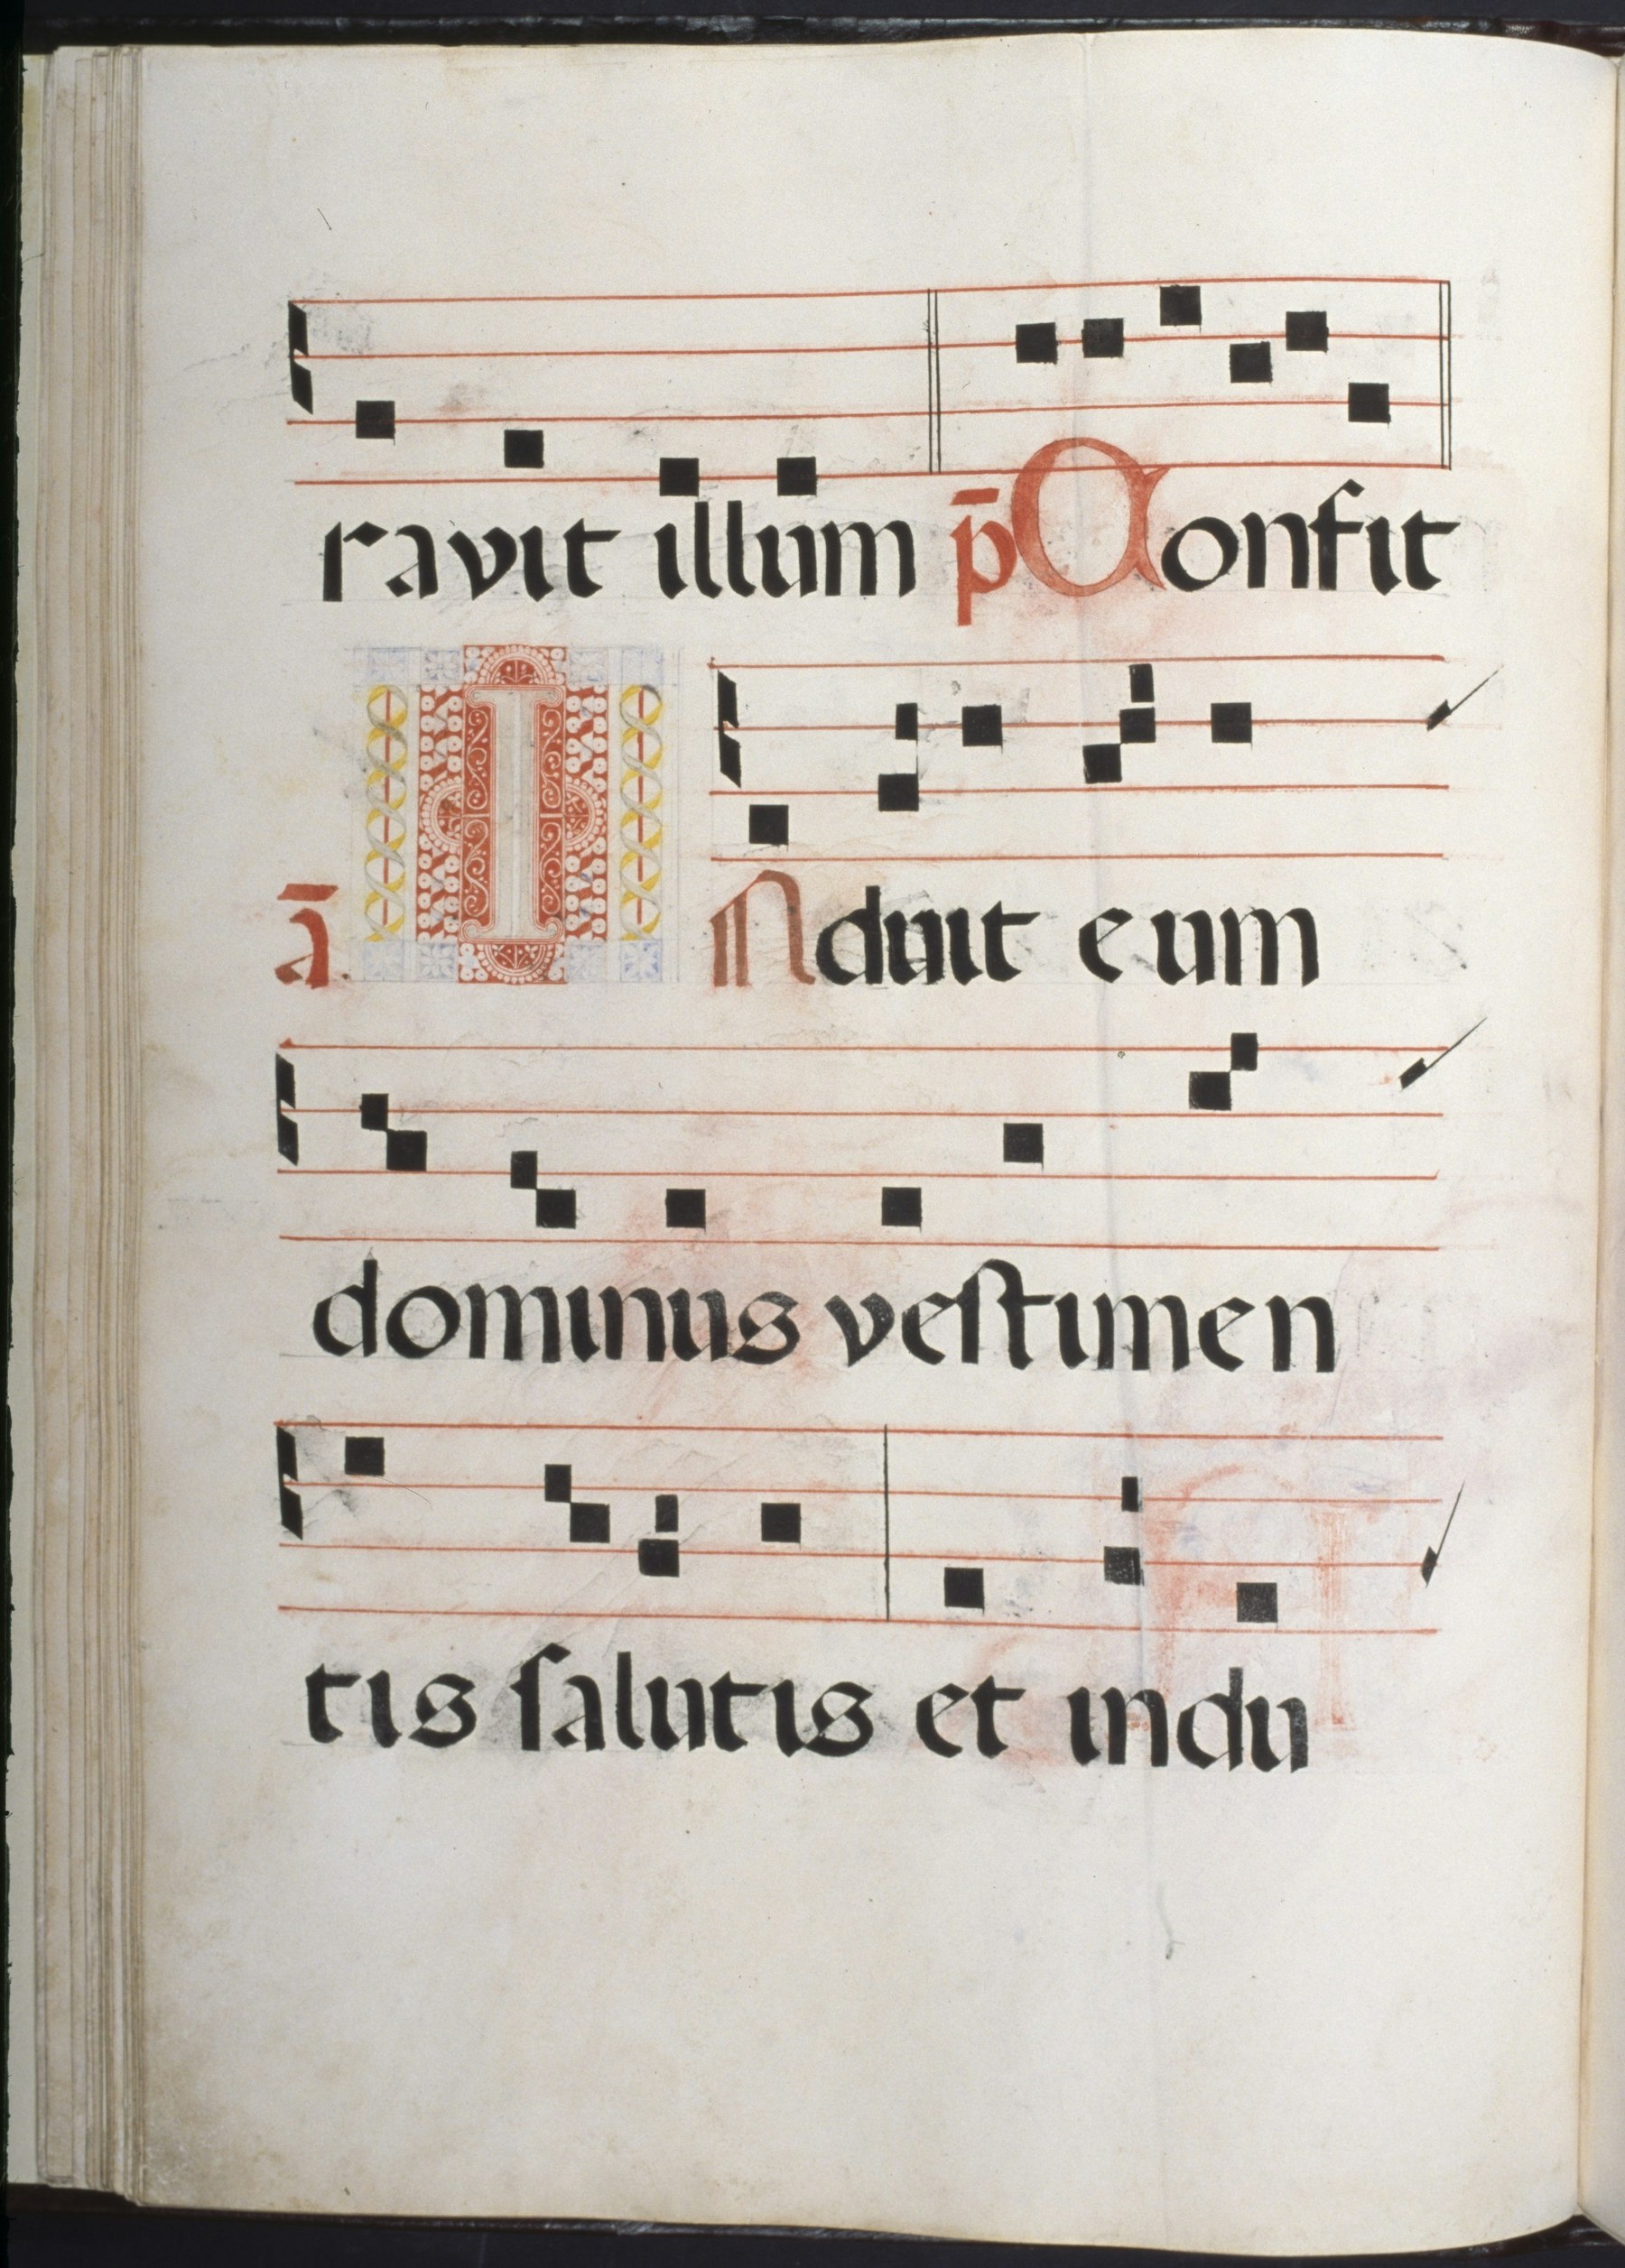 ravit illum p̄ Confit
ā. Induit eum
dominus veſtimen
tis ſalutis et indu